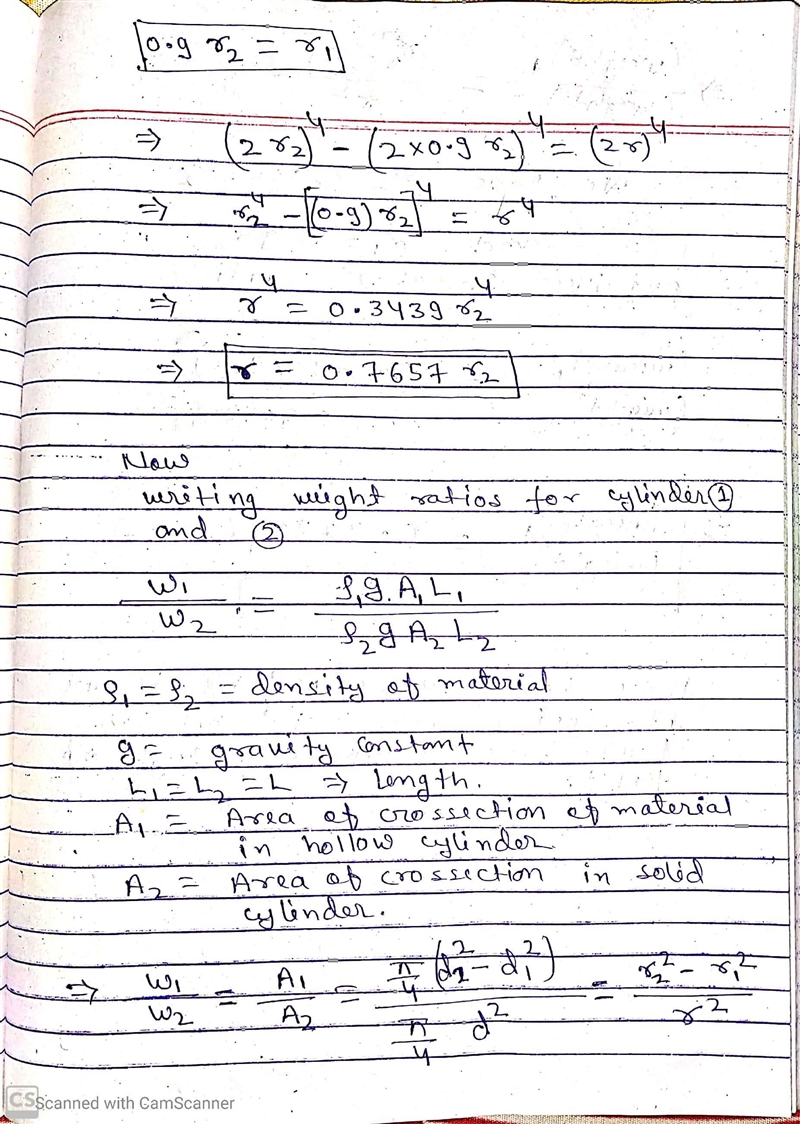 0.9 r₂ = r₁
⇒ (2 r₂)⁴ - (2×0.9 r₂)⁴ = (2r)⁴
⇒ r₂⁴ - [(0.9) r₂]⁴ = r⁴
⇒ r⁴ = 0.3439 r₂⁴
⇒ r = 0.7657 r₂
Now
writing weight ratios for cylinder ①
and ②
W₁/W₂ = ρ₁g.A₁L₁/ρ₂gA₂L₂
ρ₁ = ρ₂ = density of material
g = gravity constant
L₁ = L₂ = L ⇒ Length.
A₁ = Area of crossection of material
in hollow cylinder
A₂ = Area of crossection in solid
cylinder.
⇒ W₁/W₂ = A₁/A₂ = π/4 (d₂² - d₁²) / π/4 d² = r₂² - r₁² / r²
CS Scanned with CamScanner